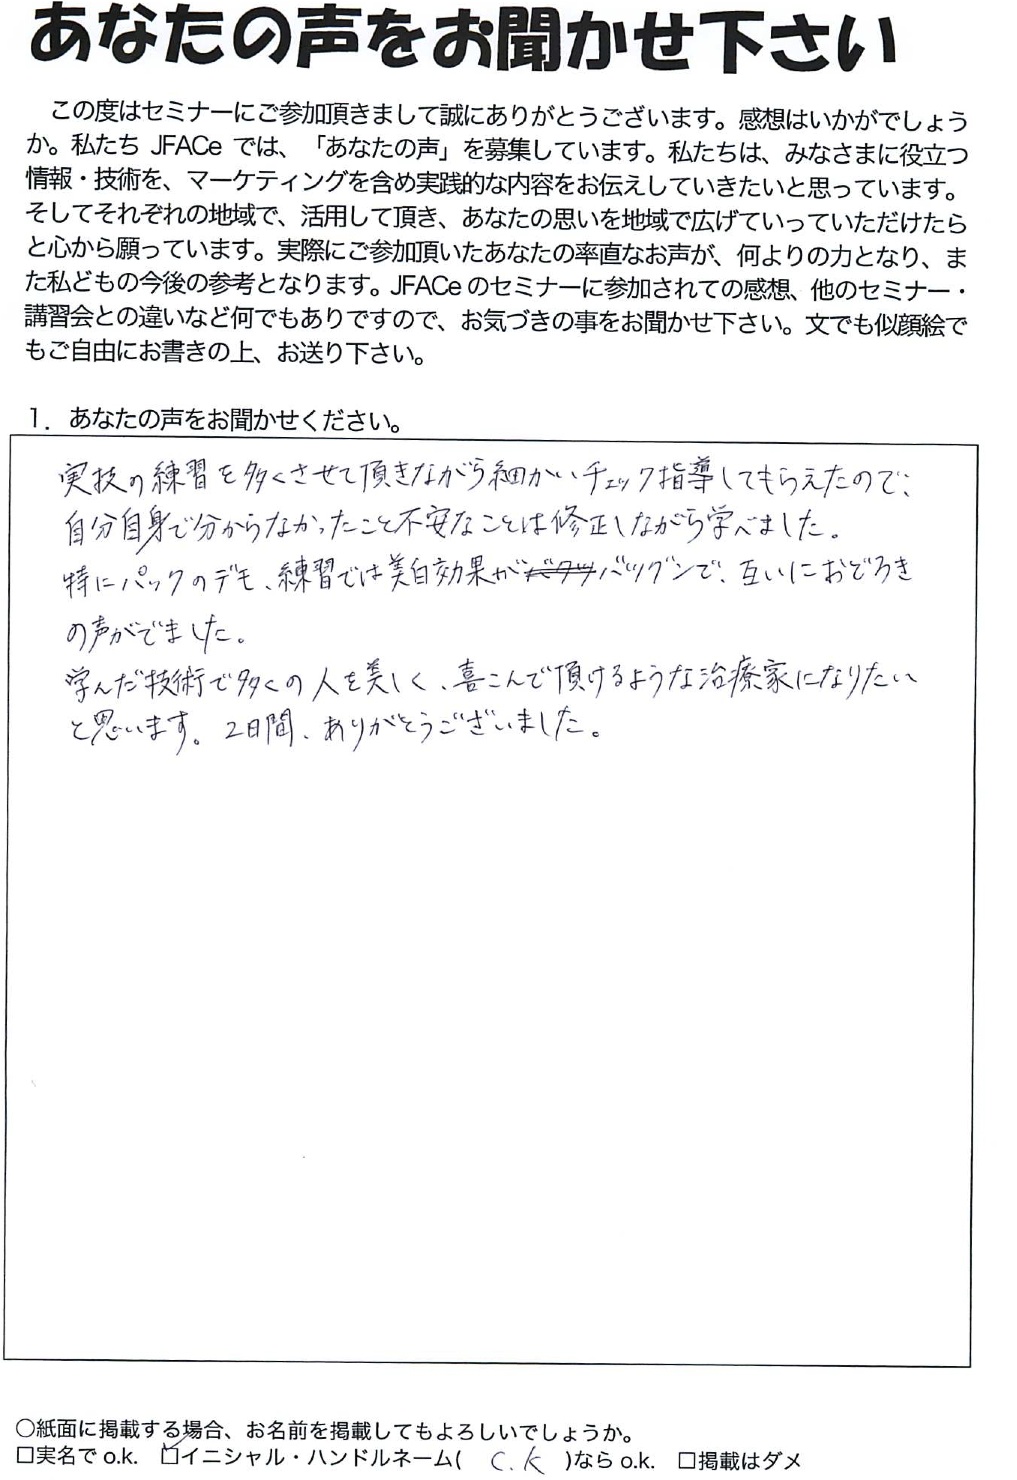 あなたの声をお聞かせ下さい
この度はセミナーにご参加頂きまして誠にありがとうございます。感想はいかがでしょう
か。私たち JFACe では、「あなたの声」を募集しています。私たちは、みなさまに役立つ
情報・技術を、マーケティングを含め実践的な内容をお伝えしていきたいと思っています。
そしてそれぞれの地域で、活用して頂き、あなたの思いを地域で広げていっていただけたら
と心から願っています。実際にご参加頂いたあなたの率直なお声が、何よりの力となり、ま
た私どもの今後の参考となります。JFACe のセミナーに参加されての感想、他のセミナー・
講習会との違いなど何でもありですので、お気づきの事をお聞かせ下さい。文でも似顔絵で
もご自由にお書きの上、お送り下さい。
1. あなたの声をお聞かせください。
実技の練習を多くさせて頂きながら細かいチェック指導してもらえたので、
自分自身で分からなかったこと不安なことは修正しながら学べました。
特にパックのデモ、練習では美白効果がバツグンで、互いにおどろき
の声がでました。
学んだ技術で多くの人を美しく、喜こんで頂けるような治療家になりたい
と思います。2日間、ありがとうございました。
○紙面に掲載する場合、お名前を掲載してもよろしいでしょうか。
□実名で o.k. □イニシャル・ハンドルネーム( C.K )なら o.k. □掲載はダメ